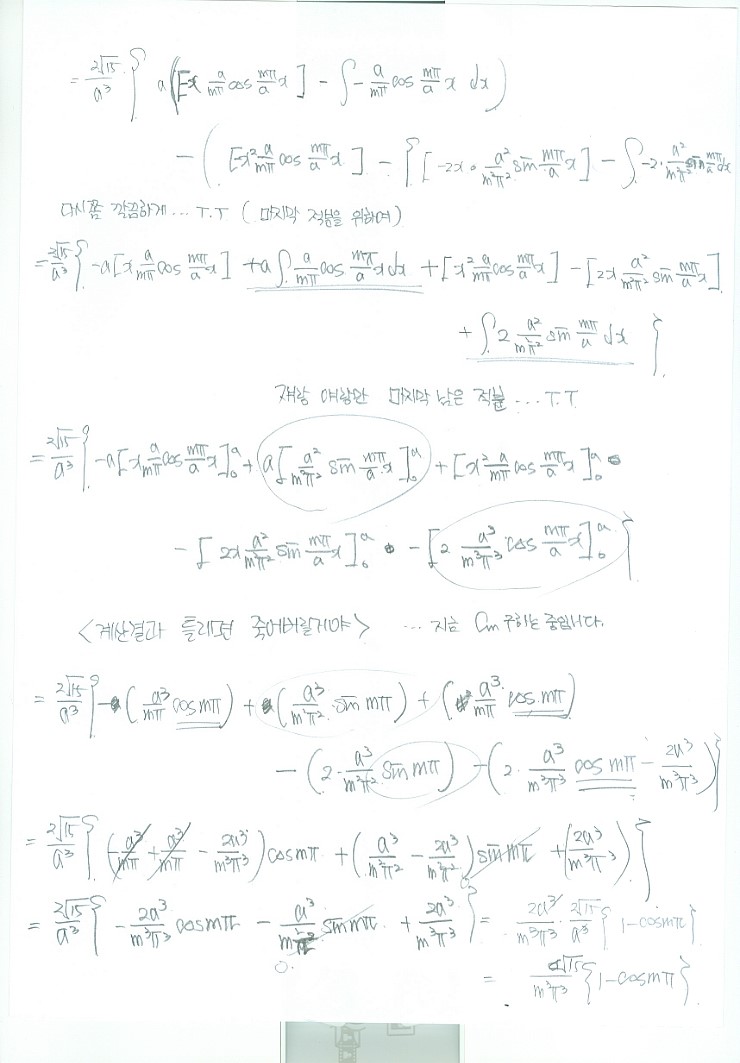 = \frac{2\sqrt{15}}{a^3} { a ( [-x \frac{a}{mπ} cos \frac{mπ}{a} x ] - ∫ -\frac{a}{mπ} cos \frac{mπ}{a} x dx )
- ( [-x^2 \frac{a}{mπ} cos \frac{mπ}{a} x ] - { [ -2x · \frac{a^2}{m^2π^2} sin \frac{mπ}{a} x ] - ∫ -2 · \frac{a^2}{m^2π^2} sin \frac{mπ}{a} dx
다시쫌 깍끔하게... T.T ( 마지막 적분을 위하여)
= \frac{2\sqrt{15}}{a^3} { -a [x \frac{a}{mπ} cos \frac{mπ}{a} x ] + a ∫ \frac{a}{mπ} cos \frac{mπ}{a} x dx + [x^2 \frac{a}{mπ} cos \frac{mπ}{a} x] - [2x \frac{a^2}{m^2π^2} sin \frac{mπ}{a} x ]
+ ∫ 2 \frac{a^2}{m^2π^2} sin \frac{mπ}{a} dx }
쟤랑 얘랑만 마지막 남은 적분 ... T.T
= \frac{2\sqrt{15}}{a^3} { -a [x \frac{a}{mπ} cos \frac{mπ}{a} x ]_0^a + a [ \frac{a^2}{m^2π^2} sin \frac{mπ}{a} x ]_0^a + [x^2 \frac{a}{mπ} cos \frac{mπ}{a} x ]_0^a
- [ 2x \frac{a^2}{m^2π^2} sin \frac{mπ}{a} x ]_0^a - [ 2 \frac{a^3}{m^3π^3} cos \frac{mπ}{a} x ]_0^a }
<계산결과 틀리면 죽어버릴거야> ... 지금 a_m 구하는 중입니다.
= \frac{2\sqrt{15}}{a^3} { - ( \frac{a^3}{mπ} cos mπ ) + ( \frac{a^3}{m^2π^2} · sin mπ ) + ( \frac{a^3}{mπ} cos mπ )
- ( 2 · \frac{a^3}{m^2π^2} sin mπ ) - ( 2 · \frac{a^3}{m^3π^3} cos mπ - \frac{2a^3}{m^3π^3} ) }
= \frac{2\sqrt{15}}{a^3} { ( -\frac{a^3}{mπ} + \frac{a^3}{mπ} - \frac{2a^3}{m^3π^3} ) cos mπ + ( \frac{a^3}{m^2π^2} - \frac{2a^3}{m^2π^2} ) sin mπ + ( \frac{2a^3}{m^3π^3} ) }
= \frac{2\sqrt{15}}{a^3} { - \frac{2a^3}{m^3π^3} cos mπ - \frac{a^3}{m^2π^2} sin mπ + \frac{2a^3}{m^3π^3} } = \frac{2a^3}{m^3π^3} · \frac{2\sqrt{15}}{a^3} { 1 - cos mπ }
0.
= \frac{4\sqrt{15}}{m^3π^3} { 1 - cos mπ }